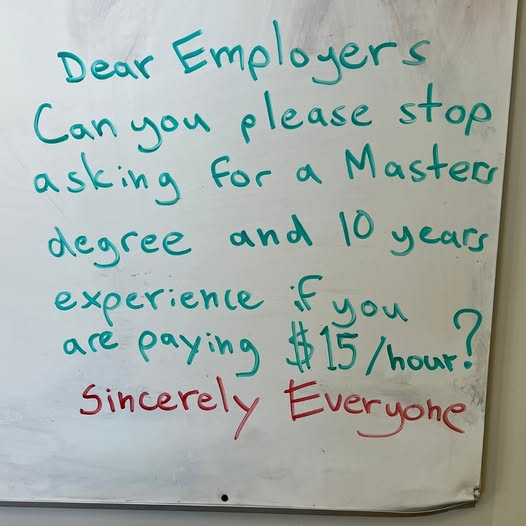 Dear Employers
Can you please stop
asking for a Masters
degree and 10 years
experience if you
are paying $15/hour?
Sincerely Everyone